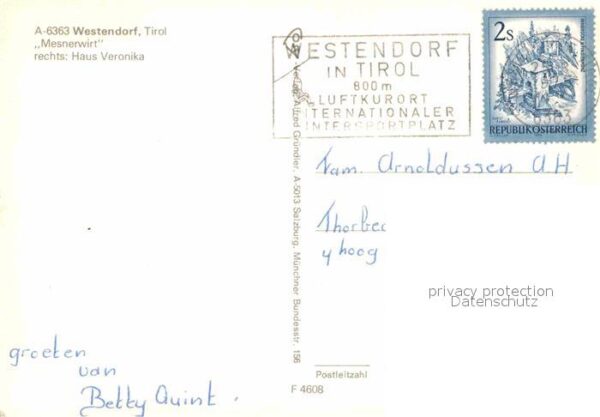 A-6363 Westendorf, Tirol
„Mesnerwirt"
rechts: Haus Veronika
WESTENDORF
IN TIROL
800m
LUFTKURORT
INTERNATIONALER
WINTERSPORTPLATZ
2s
REPUBLIK ÖSTERREICH
6363
Verlag Alfred Gründler, A-5013 Salzburg, Münchner Bundesstr. 156
Fam. Arnoldussen A H
Thorbec
y hoog
privacy protection
Datenschutz
groeten
van
Betty Quint.
Postleitzahl
F 4608